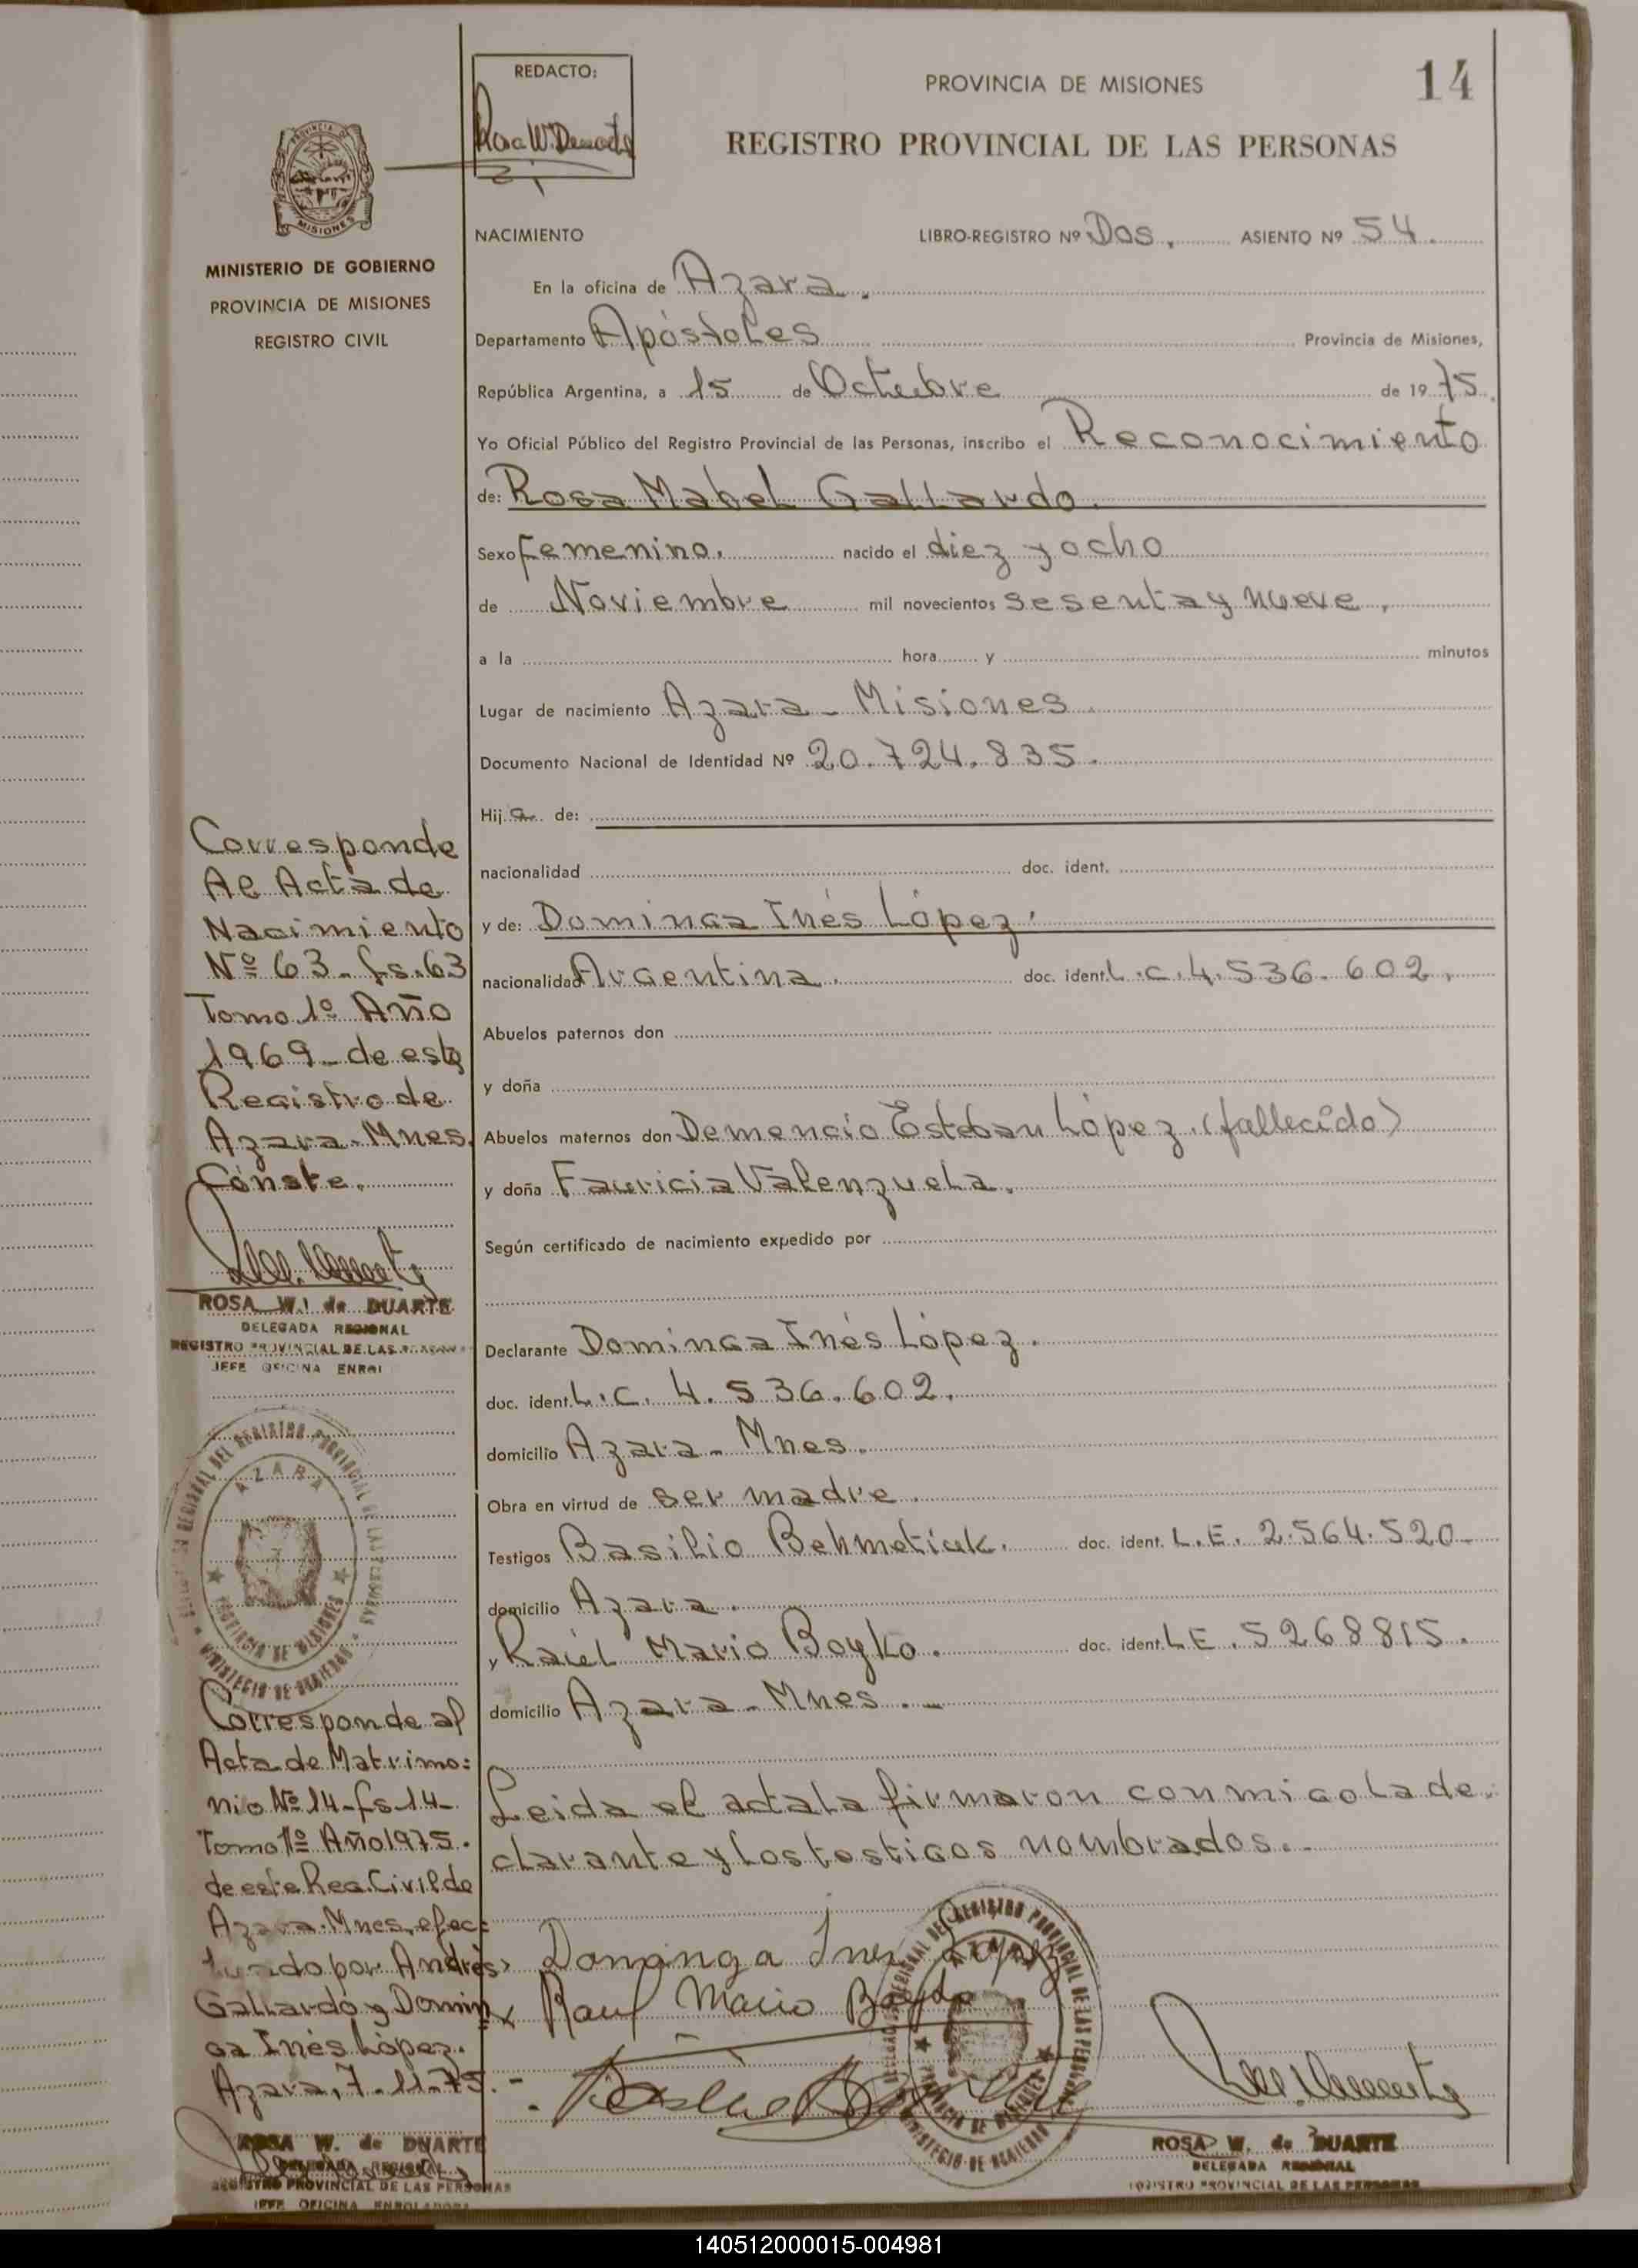 REDACTO:
PROVINCIA DE MISIONES
14
REGISTRO PROVINCIAL DE LAS PERSONAS
MISIONES
MINISTERIO DE GOBIERNO
PROVINCIA DE MISIONES
REGISTRO CIVIL
NACIMIENTO LIBRO-REGISTRO Nº Dos, ASIENTO Nº 54.
En la oficina de Azara.
Departamento Apóstoles Provincia de Misiones,
República Argentina, a 15 de Octubre de 1975.
Yo Oficial Público del Registro Provincial de las Personas, inscribo el Reconocimiento
de: Rosa Mabel Gallardo.
Sexo Femenino. nacido el diez y ocho
de Noviembre mil novecientos sesenta y nueve,
a la hora y minutos
Lugar de nacimiento Azara - Misiones.
Documento Nacional de Identidad Nº 20.724.835.
Hija de:
nacionalidad doc. ident.
y de: Dominga Inés López.
nacionalidad Argentina. doc. ident. L.C. 4.536.602.
Abuelos paternos don
y doña
Abuelos maternos don Demencio Esteban López. (fallecido)
y doña Fauricia Valenzuela.
Según certificado de nacimiento expedido por
Declarante Dominga Inés López.
doc. ident. L.C. 4.536.602.
domicilio Azara - Mnes.
Obra en virtud de ser madre.
Testigos Basilio Behmetiuk. doc. ident. L.E. 2.564.520-
domicilio Azara.
y Raúl Mario Boyko. doc. ident. LE. 5268815.
domicilio Azara - Mnes.-
Leida el acta la firmaron conmigo la de-
clarante y los testigos nombrados.-
Dominga Ines Lopez
Raul Mario Boyko
ROSA W. de DUARTE
DELEGADA REGIONAL
REGISTRO PROVINCIAL DE LAS PERSONAS
Corresponde
Al Acta de
Nacimiento
Nº 63 - fs. 63
Tomo 1º Año
1969 - de este
Registro de
Azara - Mnes.
Conste.
ROSA W. de DUARTE
DELEGADA REGIONAL
REGISTRO PROVINCIAL DE LAS PERSONAS
JEFE OFICINA ENROL
AZARA
PROVINCIA DE MISIONES
MINISTERIO DE GOBIERNO
Corresponde al
Acta de Matrimo=
nio Nº 14 - fs 14 -
Tomo 1º Año 1975.
de este Reg. Civil de
Azara - Mnes, efec=
tuado por Andrés
Gallardo y Domin
ga Inés López.
Azara, 7-11-75.-
ROSA W. de DUARTE
DELEGADA REGIONAL
REGISTRO PROVINCIAL DE LAS PERSONAS
JEFE OFICINA ENROLADORA
140512000015-004981